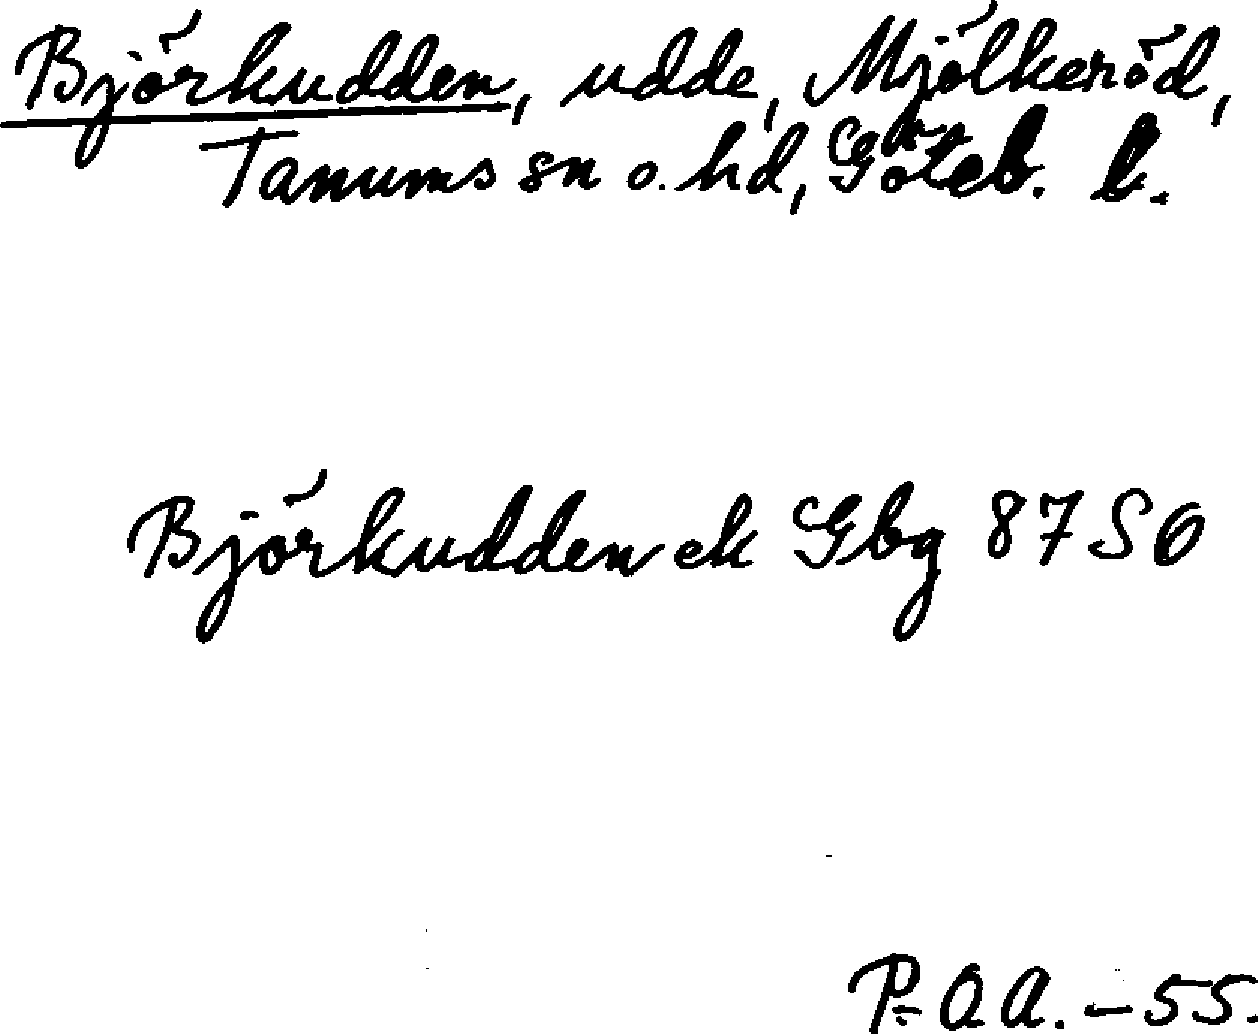 Björkudden, udde, Mjölkeröd,
Tanums sn o. hd, Göteb. l.
Björkudden ek Gbg 87 SO
P-O A. – 55.